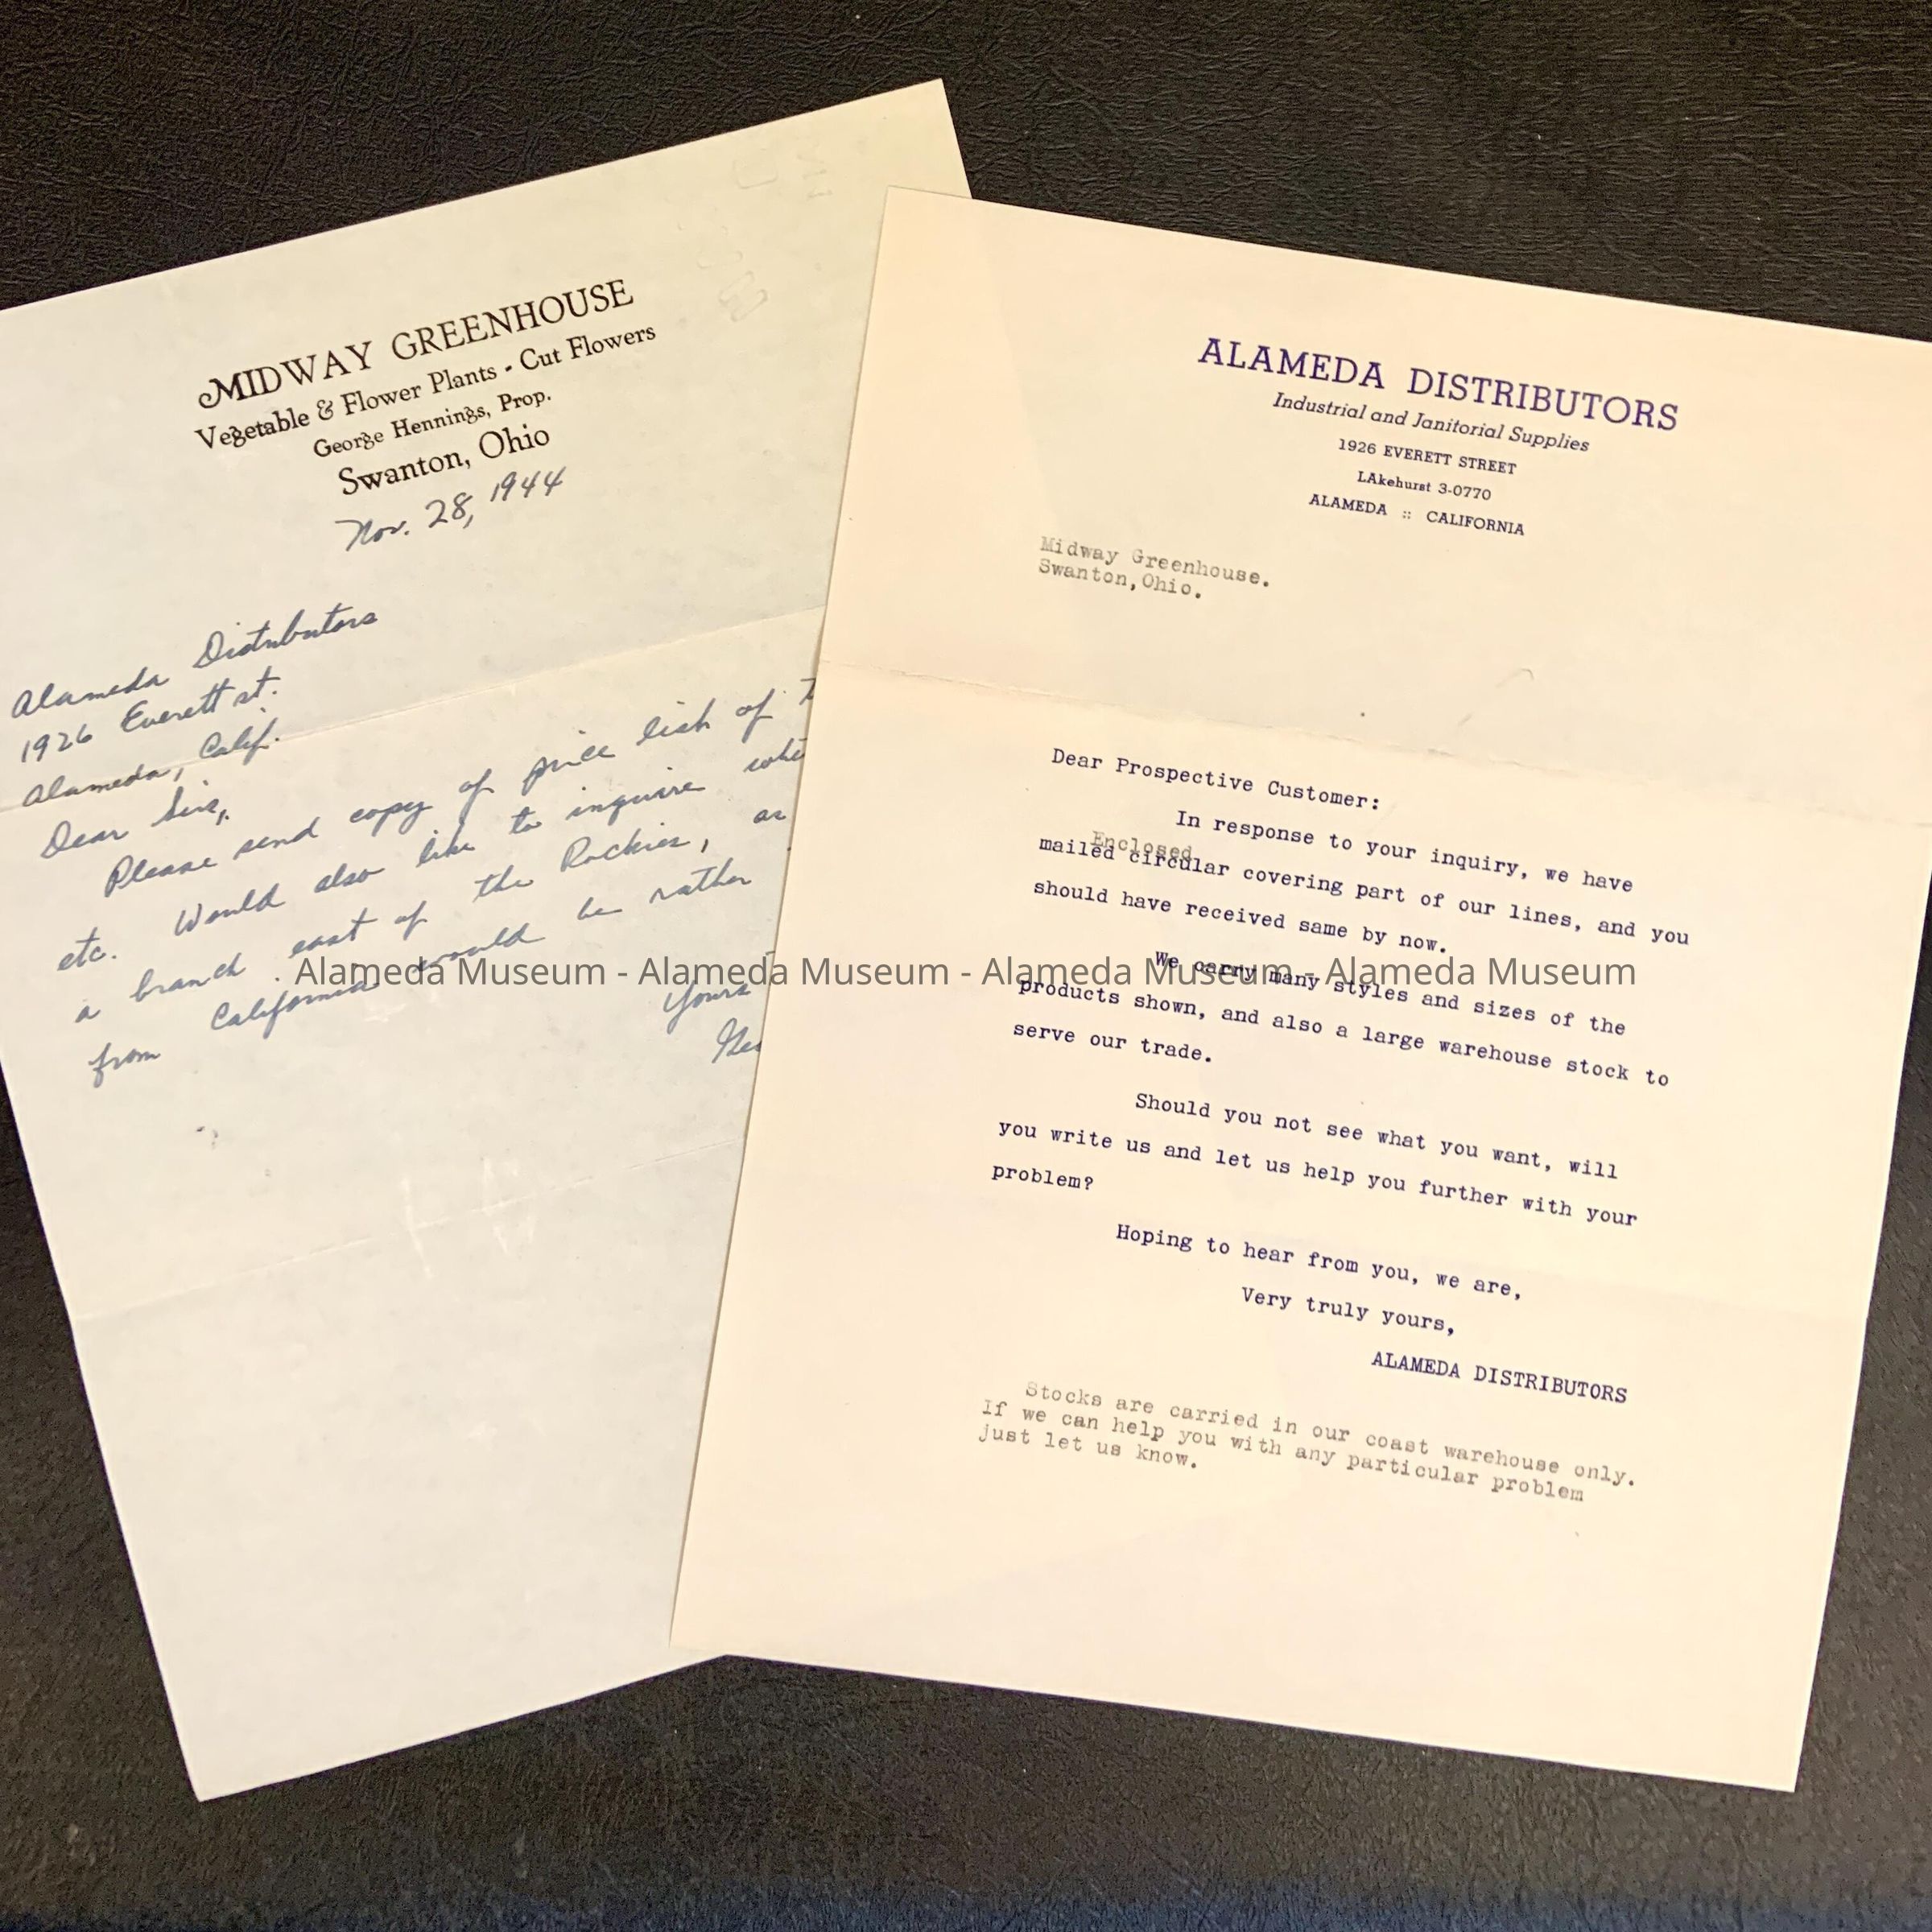 MIDWAY GREENHOUSE
Vegetable & Flower Plants - Cut Flowers
George Hennings, Prop.
Swanton, Ohio
Nov. 28, 1944
Alameda Distributors
1926 Everett st.
Alameda, Calif.
Dear Sir,
Please send copy of price list of
etc. Would also like to inquire
a branch east of the Rockies, as
from California would be rather
Yours
ALAMEDA DISTRIBUTORS
Industrial and Janitorial Supplies
1926 EVERETT STREET
LAkehurst 3-0770
ALAMEDA :: CALIFORNIA
Midway Greenhouse.
Swanton,Ohio.
Dear Prospective Customer:
In response to your inquiry, we have
Enclosed
mailed circular covering part of our lines, and you
should have received same by now.
We carry many styles and sizes of the
products shown, and also a large warehouse stock to
serve our trade.
Should you not see what you want, will
you write us and let us help you further with your
problem?
Hoping to hear from you, we are,
Very truly yours,
ALAMEDA DISTRIBUTORS
Stocks are carried in our coast warehouse only.
If we can help you with any particular problem
just let us know.
Alameda Museum - Alameda Museum - Alameda Museum - Alameda Museum